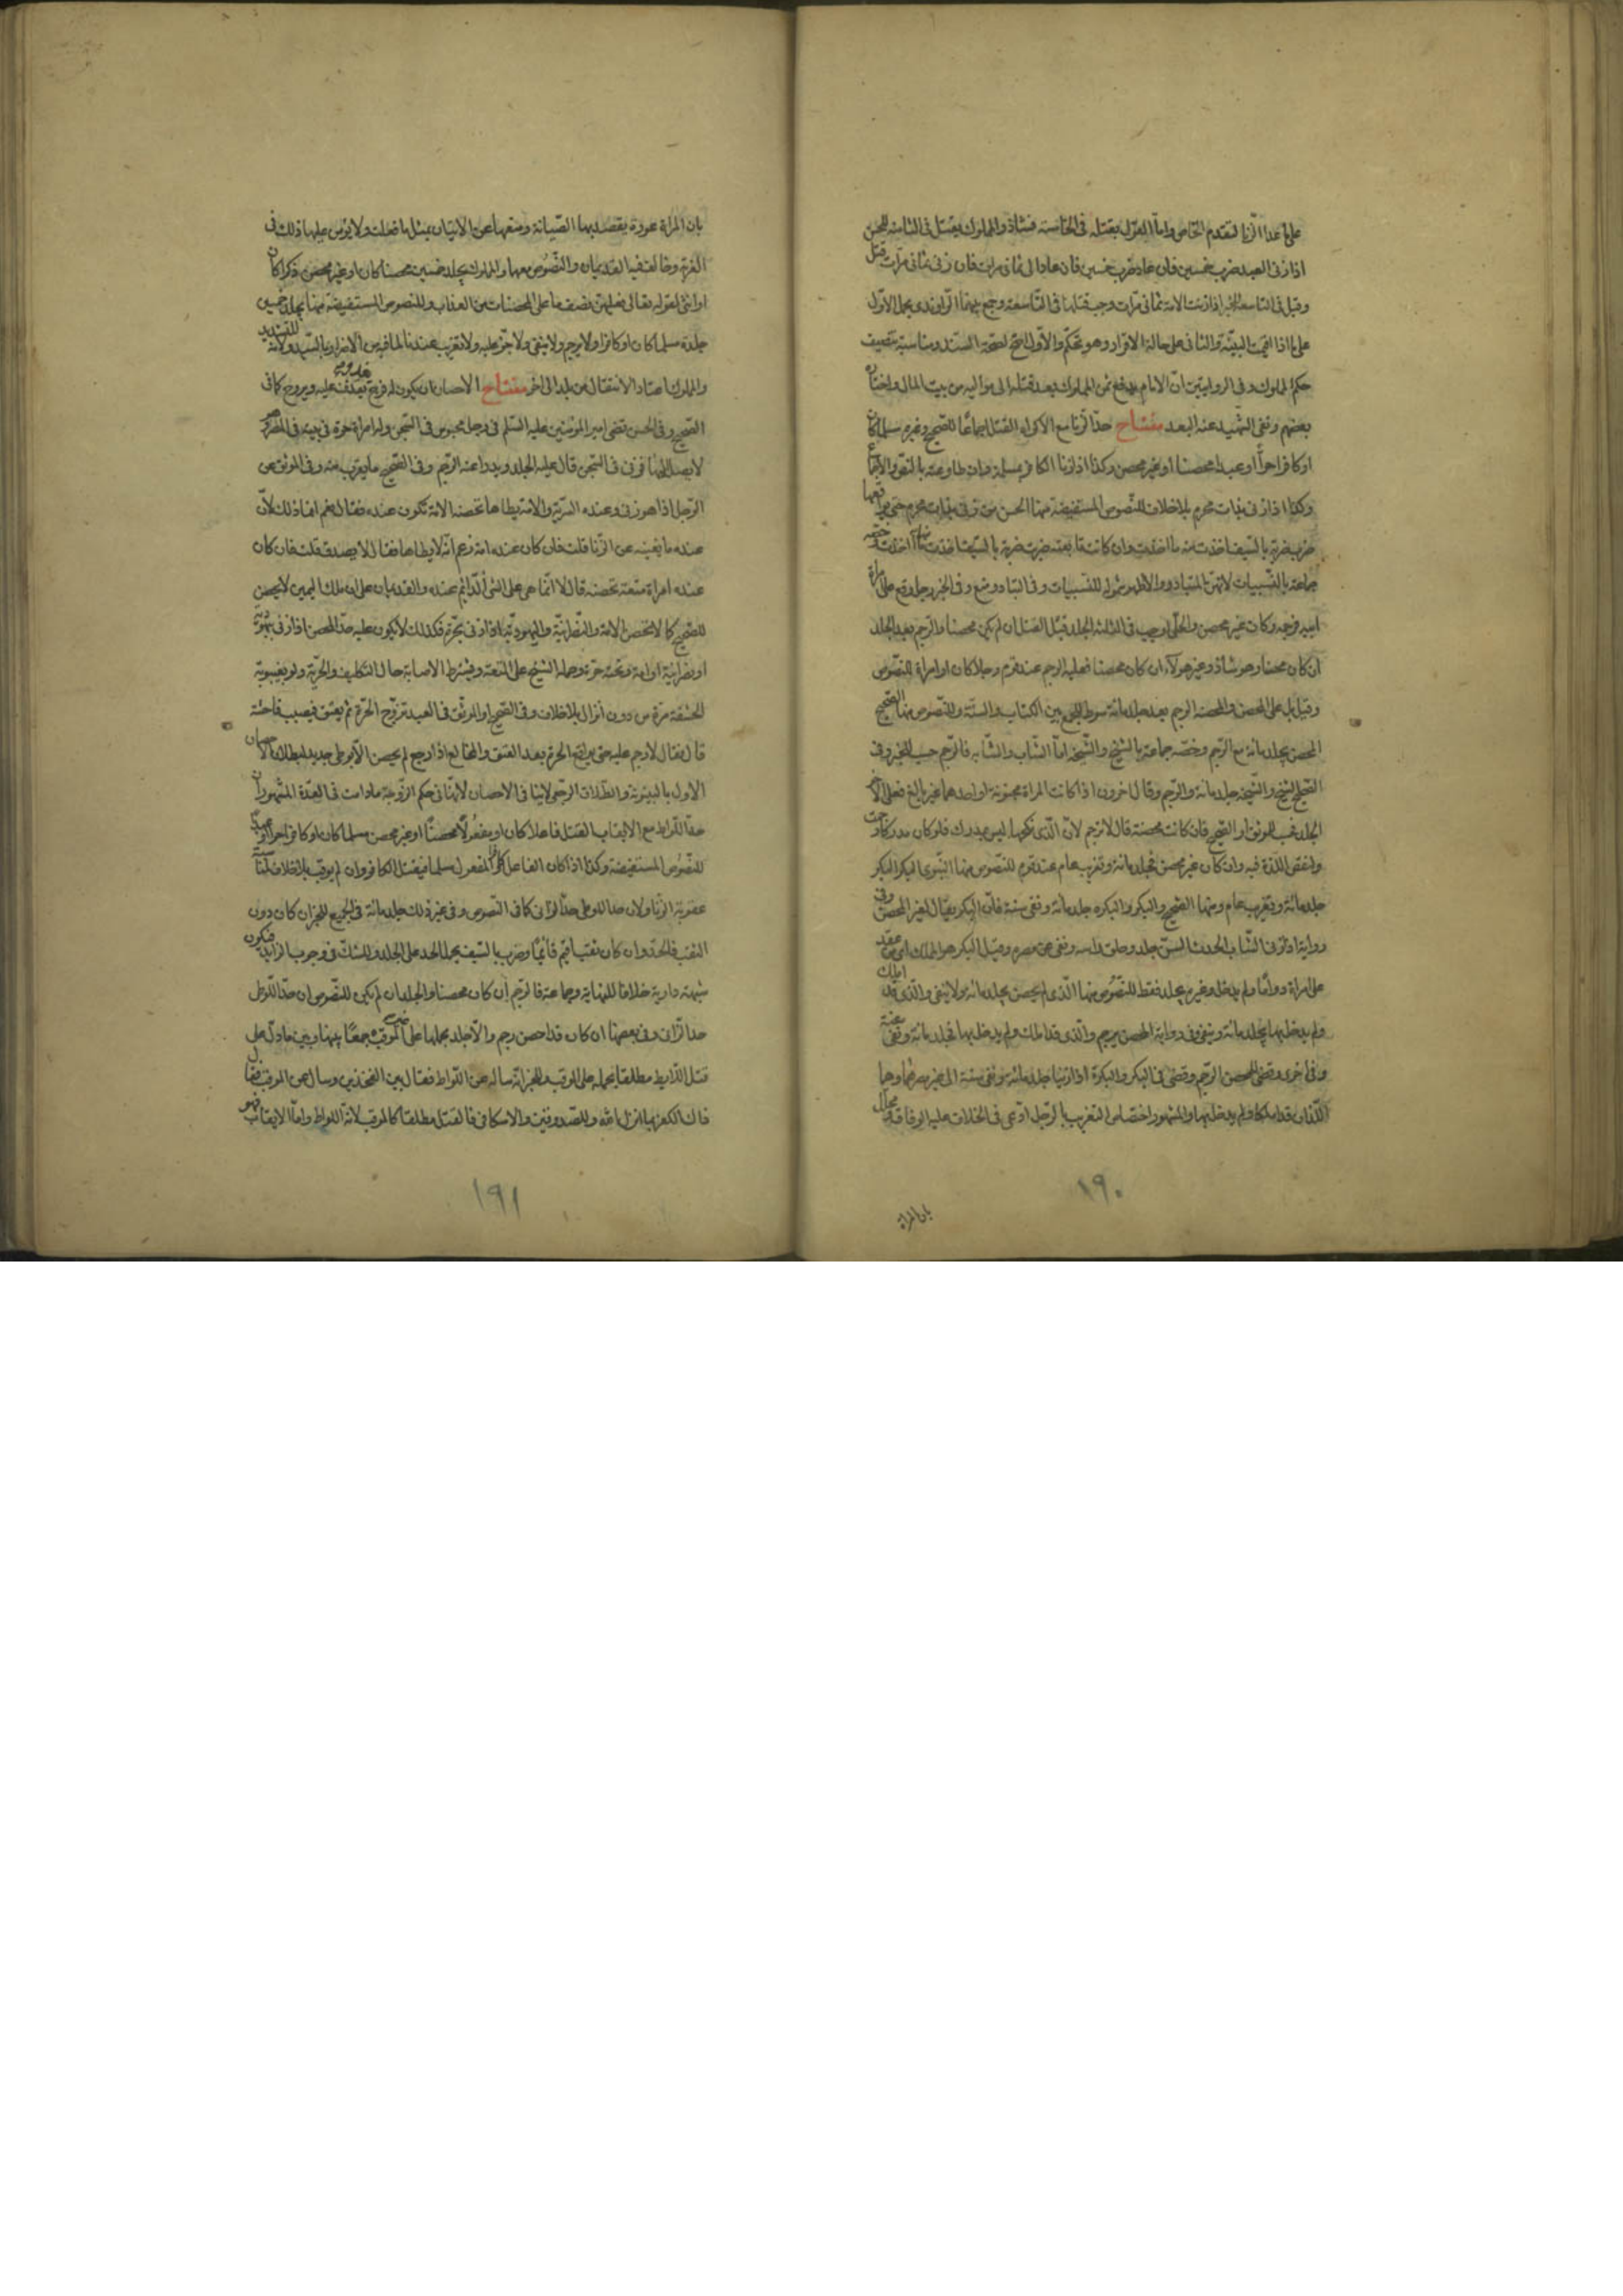 على ما عدا الزنا لتقدم الخاص واما القول بقتله في الخامسة فشاذ والمملوك يقتل في الثامنة للحسن
اذا زنى العبد ضرب خمسين فان عاد ضرب خمسين فان عاد الى ثماني مرات فان زنى ثماني مرات قتل
وقيل في التاسعة للخبر اذا زنت الامة ثماني مرات وجب قتلها في التاسعة وجمع بينهما الراوندي بحمل الاول
على ما اذا اقيمت البينة والثاني على حالة الاقرار وهو تحكم والاول اصح لصحة السند ومناسبة تنصيف
حكم المملوك وفي الروايتين ان الامام يدفع ثمن المملوك بعد قتله الى مواليه من بيت المال واختاره
بعضهم ونفى الشهيد عنه البعد مفتاح حد الزنا مع الاكراه القتل اجماعا للصحيح وغيره مسلما كان
او كافرا حرا او عبدا محصنا او غير محصن وكذا اذا زنا الكافر بمسلمة وان طاوعته بالنص والاجماع
وكذا اذا زنى بذات محرم بلا خلاف للنصوص المستفيضة منها الحسن من زنى بذات محرم حتى يواقعها
ضرب ضربة بالسيف اخذت منه ما اخذت وان كانت تابعته ضربت ضربة بالسيف اخذت منها ما اخذت وخصه
جماعة بالنسبيات لانهن المتبادر والاظهر شموله للسببيات وفي التبادر منع وفي الخبر رجل وقع على امراة
ابيه فرجمه وكان غير محصن والحلي اوجب في الثلثة الجلد قبل القتل ان لم يكن محصنا والرجم بعد الجلد
ان كان محصنا وهو شاذ وغير هولاء ان كان محصنا فعليه الرجم عند قوم رجلا كان او امراة للنصوص
وقيل بل على المحصن والمحصنة الرجم بعد جلد مائة سوط للجمع بين الكتاب والسنة وللنصوص منها الصحيح
المحصن يجلد مائة مع الرجم وخصه جماعة بالشيخ والشيخة اما الشاب والشابة فالرجم حسب للخبر وفي
الصحيح الشيخ والشيخة جلد مائة والرجم وقال اخرون اذا كانت المراة مجنونة او احدهما غير بالغ فعلى الاخر
الجلد حسب للموثق او الصحيح فان كانت محصنة قال لا ترجم لان الذي نكحها ليس بمدرك فلو كان مدركا رجمت
ولنقص اللذة فيه وان كان غير محصن فجلد مائة وتغريب عام عند قوم للنصوص منها النبوي البكر بالبكر
جلد مائة وتغريب عام ومنها الصحيح والبكر والبكرة جلد مائة ونفي سنة فان البكر يقال لغير المحصن وفي
رواية اذا زنى الشاب الحدث السن جلد وحلق راسه ونفي عن مصره وقيل البكر هو المملك اي من عقد
على امراة دواما ولم يدخل وغيره يجلد فقط للنصوص منها الذي لم يحصن يجلد مائة ولا ينفى والذي قد املك
ولم يدخل بها يجلد مائة وينفى وفي رواية المحصن يرجم والذي قد املك ولم يدخل بها فجلد مائة ونفي سنة
وفي اخرى وقضى للمحصن الرجم وقضى في البكر والبكرة اذا زنيا جلد مائة ونفي سنة الى غير مصرهما وهما
اللذان قد املكا ولم يدخل بها والمشهور اختصاص التغريب بالرجل ادعى في الخلاف عليه الوفاق معللا
بان المراة
١٩٠
بان المراة عورة يقصد بها الصيانة ومنعها عن الاتيان بمثل ما فعلت ولا يؤمن عليها ذلك في
الغربة وخالف فيه القديمان والنصوص معهما والمملوك يجلد خمسين محصنا كان او غير محصن ذكرا كان
او انثى لقوله تعالى فعليهن نصف ما على المحصنات من العذاب وللنصوص المستفيضة منها يجلد خمسين
جلدة مسلما كان او كافرا ولا يرجم ولا ينفى ولا جز عليه ولا تغريب عندنا لما فيه من الاضرار بالسيد ولانه للتشديد
والمملوك معتاد الانتقال من بلد الى اخر مفتاح الاحصان ان يكون له فرج يغدو عليه ويروح كما في
الصحيح وفي الحسن قضى امير المؤمنين عليه السلم في رجل محبوس في السجن وله امراة حرة في بيته في المصر وهو
لا يصل اليها فزنى في السجن قال عليه الجلد ويدرا عنه الرجم وفي الصحيح ما يقرب منه وفي الموثق عن
الرجل اذا هو زنى وعنده السرية والامة يطاها تحصنه الامة تكون عنده فقال نعم انما ذلك لان
عنده ما يغنيه عن الزنا قلت فان كان عنده امة زعم انه لا يطاها فقال لا يصدق قلت فان كان
عنده امراة متعة تحصنه قال لا انما هي على الشئ الدائم عنده والقديمان على ان ملك اليمين لا يحصن
للصحيح كما لا تحصنه الامة والنصرانية واليهودية اذا زنى بحرة فكذلك لا يكون عليه حد المحصن اذا زنى بيهودية
او نصرانية او امة وتحته حرة وحمله الشيخ على المتعة ويشترط الاصابة حال التكليف والحرية ولو بغيبوبة
الحشفة مرة من دون انزال بلا خلاف وفي الصحيح او الموثق في العبد تزوج الحرة ثم يعتق فيصيب فاحشة
قال فقال لا رجم عليه حتى يواقع الحرة بعد العتق والمخالع اذا رجع لم يحصن الا بوطى جديد لبطلان الاحصان
الاول بالبينونة والطلاق الرجعي لا ينافي الاحصان لانها في حكم الزوجة ما دامت في العدة
حد اللواط مع الايقاب القتل فاعلا كان او مفعولا محصنا او غير محصن مسلما كان او كافرا حرا او عبدا
للنصوص المستفيضة وكذا اذا كان الفاعل كافرا والمفعول مسلما فيقتل الكافر وان لم يوقب بلا خلاف
عقوبة الزنا ولان حد اللوطي حد الزاني كما في النصوص وفي غير ذلك جلد مائة في الجميع للخبر ان كان دون
الثقب فالحد وان كان ثقب اقيم قائما وضرب بالسيف بحمل الحد على الجلد وللشك في وجوب الزايد فيكون
شبهة دارية خلافا للنهاية وجماعة فالرجم ان كان محصنا والجلد ان لم يكن للنصوص ان حد اللوطي
حد الزاني وفي بعضها ان كان قد احصن رجم والا جلد بحملها على غير الموقب جمعا بينها وبين ما دل على
قتل اللايط مطلقا بحمله على الموقب وللخبر انه ساله عن اللواط فقال بين الفخذين وسال عن الموقب فقال
ذاك الكفر بما انزل الله وللصدوقين والاسكافي فالقتل مطلقا كالموقب لانه اللواط واما الايقاب فهو
١٩١